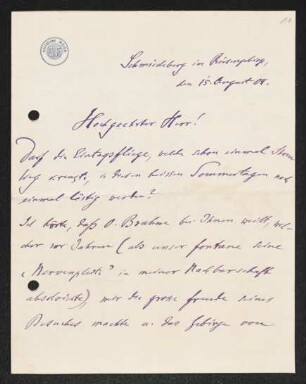 Schmiedeberg im Riesengebirge,
den 15. August 08.
Hochgeehrter Herr!
Darf die Eintagsfliege, welche schon einmal Ihren
Weg kreuzte, in diesen heissen Sommertagen noch
einmal lästig werden?
Ich hörte, daß O. Brahm bei Ihnen weilt, wel-
cher vor Jahren (als unser Fontane seine
in meiner Nachbarschaft
mir die große Freude seines
Besuches machte u. das Gebirge von